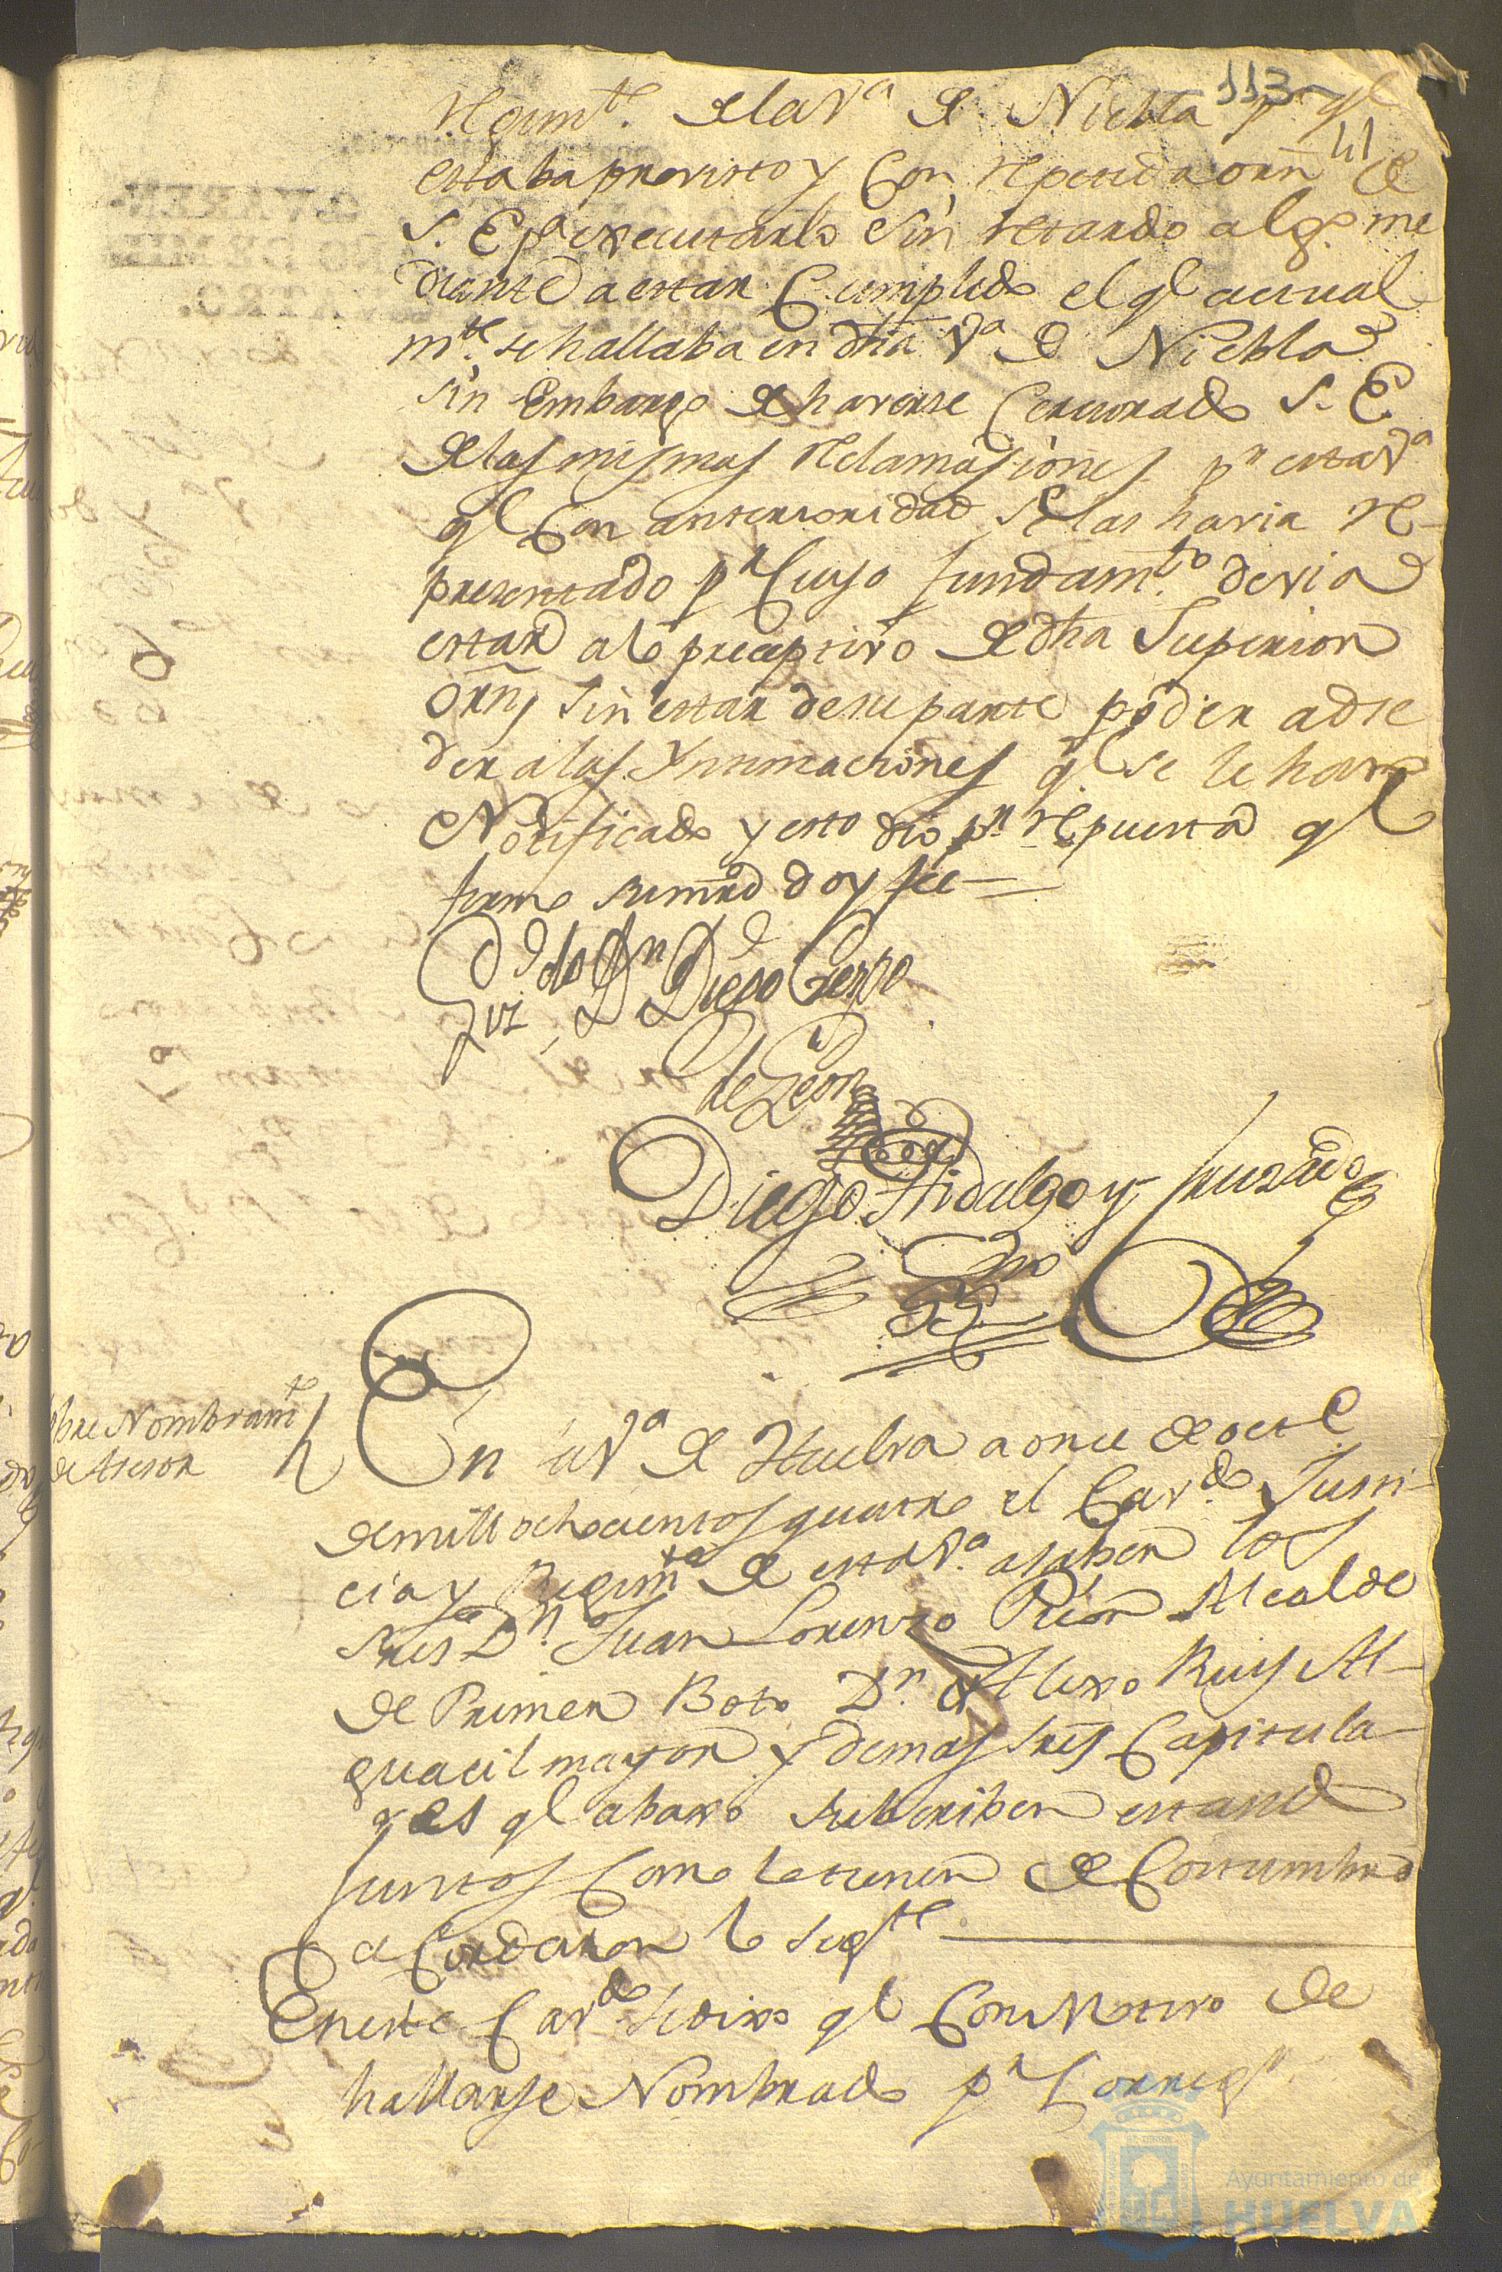 113
41
Regimte. de la Va. de Niebla pa. ql.
estaba provisto y con repetida orn de
S. E. pa. executarlo sin retardo algo. me
diante a estar cumplido el ql. actual
mte. se hallaba en dha Va. de Niebla
sin embargo de haverse cerciorado S. E.
de las mismas reclamasiones pr. esta Va.
ql. con anterioridad se las havia re-
presentado pr. cuyo fundamto. devia
estar a lo preceptivo de dha Superior
orn, sin estar de su parte poder acse
der a las Yntimaciones ql. se le han
Notificado y esto dio pr. repuesta ql.
firmo su mrd doy fee
Ldo. Dn. Diego Cerezo
de Leon
Diego Hidalgo y Jurado
Essno
Sobre Nombramte.
de Asesor
En la Va. de Huelva a once de octe.
de mill ochocientos quatro el Cavdo. Justi-
cia y Regimte. de esta Va. a saber los
sres Dn. Juan Lorenzo Rion Alcalde
de Primer Boto Dn. Alexo Ruiz Al-
guacil mayor y demas sres Capitula-
res ql. abaxo subcriben estando
juntos como lo tienen de costumbre
acordaron lo sigte.
En este Cavdo. se dixo ql. con Motivo de
hallarse Nombrado pr. Corregr.
Ayuntamiento de
HUELVA